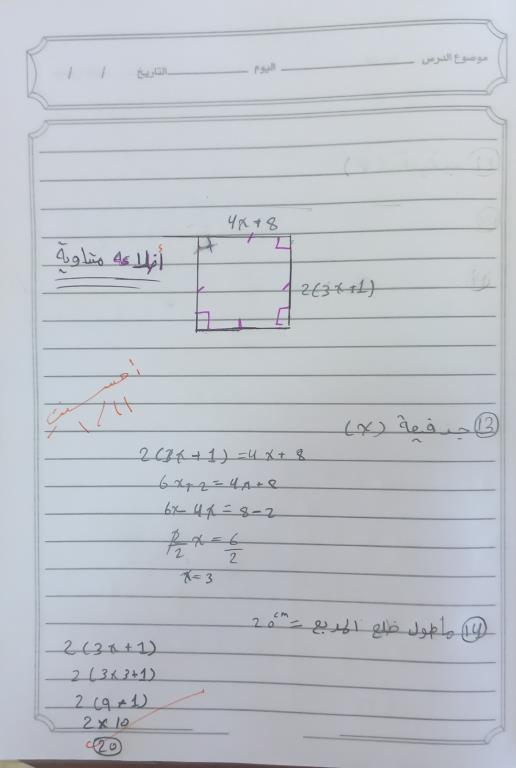 موضوع الدرس اليوم التاريخ / /
4x + 8
أضلاعه متساوية
2(3x+1)
أحسنت
13 جد قيمة (x)
2(3x+1) = 4x + 8
6x+2 = 4x+8
6x - 4x = 8 - 2
2/2 x = 6/2
x = 3
14 ما طول ضلع المربع = 20 cm
2(3x+1)
2(3×3+1)
2(9+1)
2×10
20